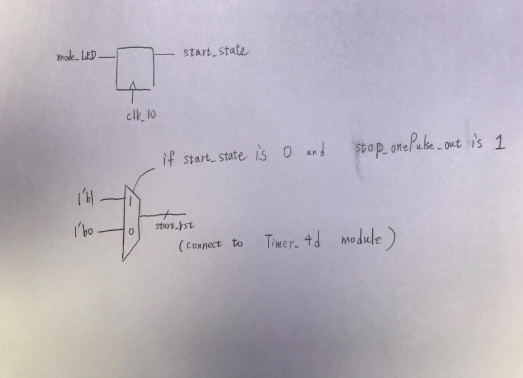 mode_LED
start_state
clk_10
if start_state is 0 and stop_onePulse_out is 1
1'b1
1
1'b0
0
start_rst
(connect to Timer_4d module)